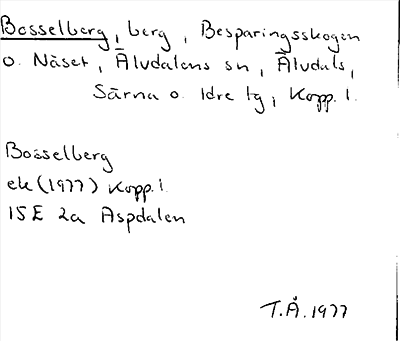 Bosselberg, berg, Besparingsskogen
o. Näset, Älvdalens sn, Älvdals,
Särna o. Idre tg, Kopp. l.
Bosselberg
ek (1977) Kopp. l.
15E 2a Aspdalen
T.Å. 1977